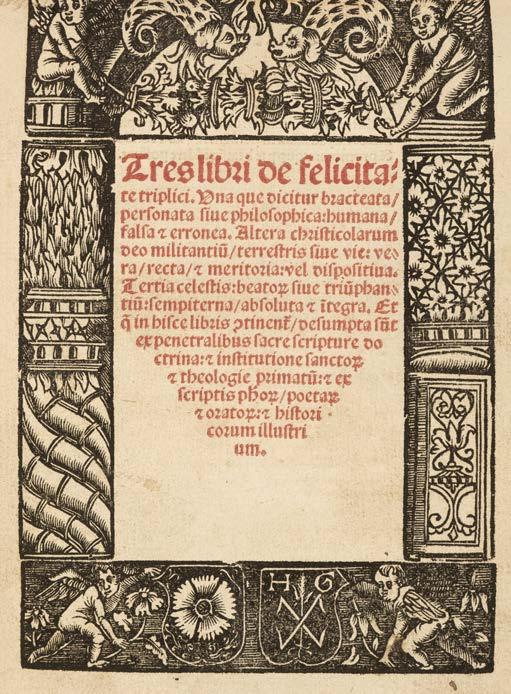 Tres libri de felicita⸗
te triplici. Una que dicitur bracteata/
personata siue philosophica:humana/
falsa ⁊ erronea. Altera christicolarum
deo militantiū/terrestris siue vie: ve⸗
ra/recta/⁊ meritoria:vel dispositiua.
Tertia celestis:beatoꝝ siue triūphan⸗
tiū:sempiterna/absoluta ⁊ ītegra. Et
q̄ in hisce libris ↄtinent̄/desumpta sūt
ex penetralibus sacre scripture do
ctrina:⁊ institutione sanctoꝝ
⁊ theologie primatū:⁊ ex
scriptis phoꝝ/poetaꝝ
⁊ oratoꝝ:⁊ histori
corum illustri
um.
H G